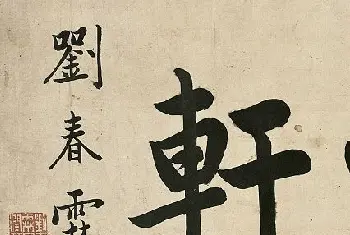 軒
劉春霖